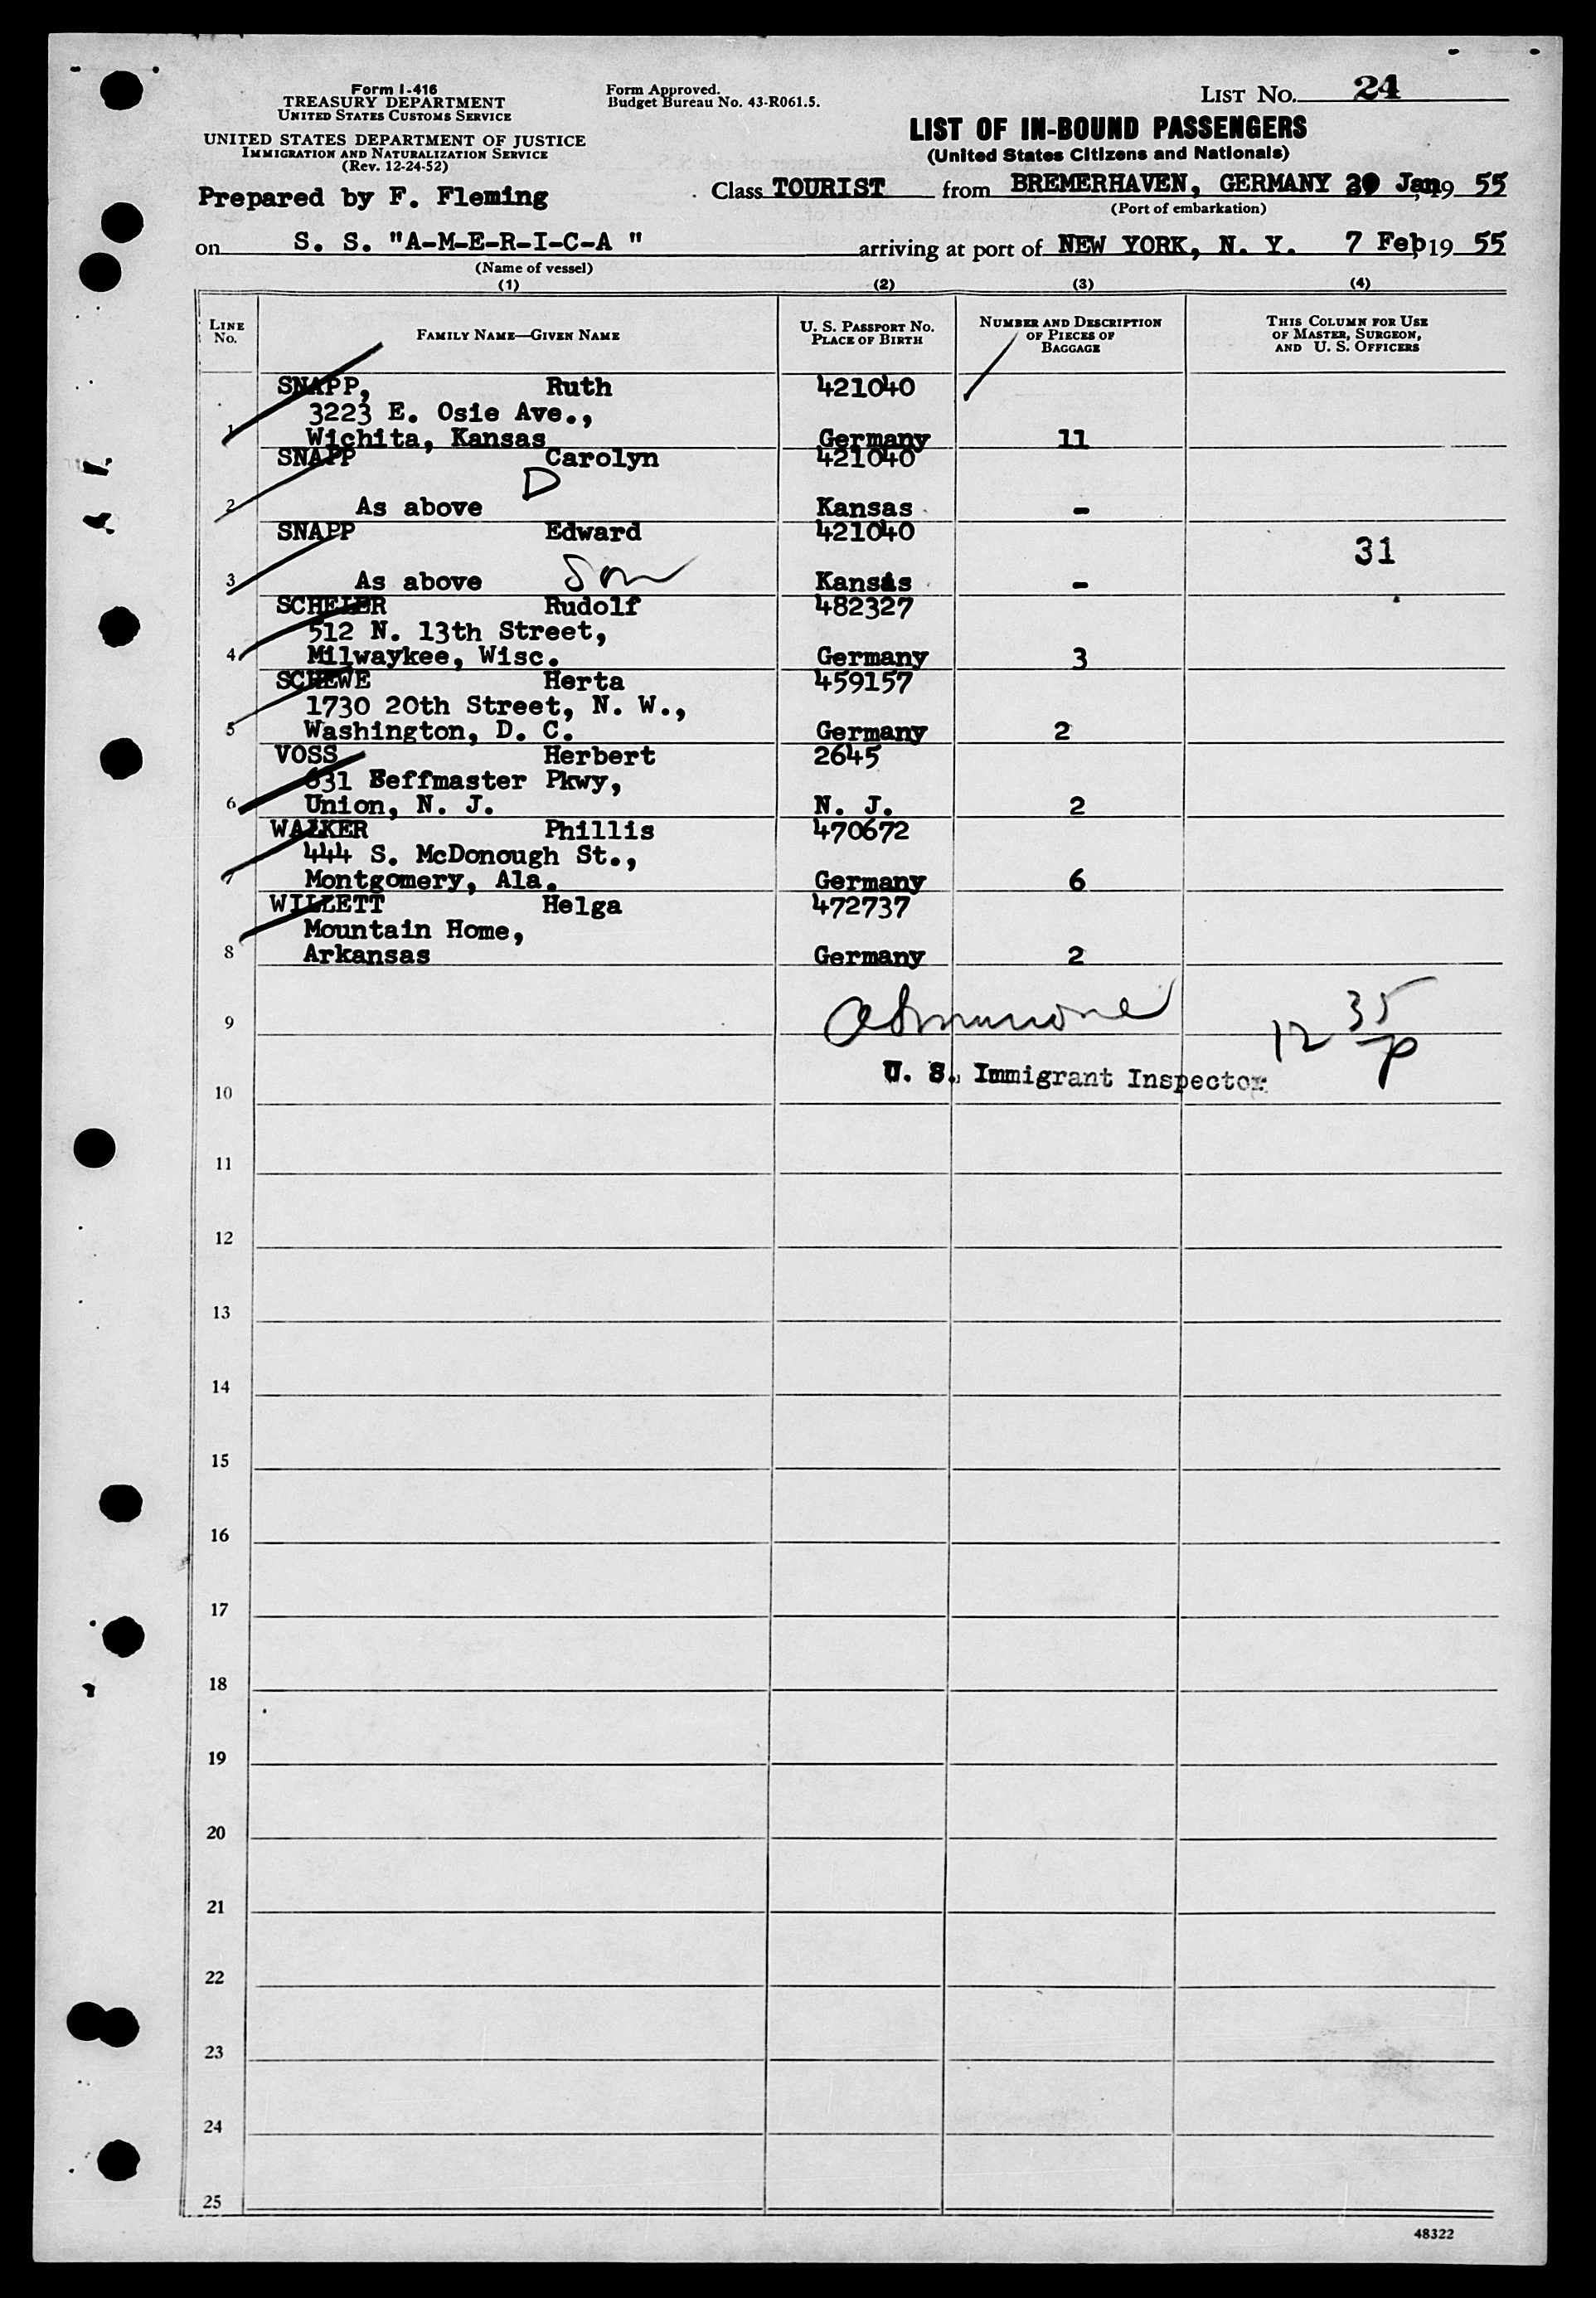 Form I-416
TREASURY DEPARTMENT
UNITED STATES CUSTOMS SERVICE
UNITED STATES DEPARTMENT OF JUSTICE
IMMIGRATION AND NATURALIZATION SERVICE
(Rev. 12-24-52)
Form Approved.
Budget Bureau No. 43-R061.5.
LIST NO. 24
LIST OF IN-BOUND PASSENGERS
(United States Citizens and Nationals)
Prepared by F. Fleming
Class TOURIST from BREMERHAVEN, GERMANY Jan, 19 55
(Port of embarkation)
on S. S. "A-M-E-R-I-C-A " arriving at port of NEW YORK, N. Y. 7 Feb, 19 55
(Name of vessel)
(1) (2) (3) (4)
LINE No. FAMILY NAME—GIVEN NAME U. S. PASSPORT NO. PLACE OF BIRTH NUMBER AND DESCRIPTION OF PIECES OF BAGGAGE THIS COLUMN FOR USE OF MASTER, SURGEON, AND U. S. OFFICERS
SNAPP, Ruth 421040
3223 E. Osie Ave.,
1 Wichita, Kansas Germany 11
SNAPP Carolyn 421040
D
2 As above Kansas -
SNAPP Edward 421040
31
3 As above Son Kansas -
SCHEIER Rudolf 482327
512 N. 13th Street,
4 Milwaykee, Wisc. Germany 3
SCHEWE Herta 459157
1730 20th Street, N. W.,
5 Washington, D. C. Germany 2
VOSS Herbert 2645
631 Beffmaster Pkwy,
6 Union, N. J. N. J. 2
WALKER Phillis 470672
444 S. McDonough St.,
7 Montgomery, Ala. Germany 6
WILLETT Helga 472737
Mountain Home,
8 Arkansas Germany 2
9 12 35 p
U. S. Immigrant Inspector
10
11
12
13
14
15
16
17
18
19
20
21
22
23
24
25
48322